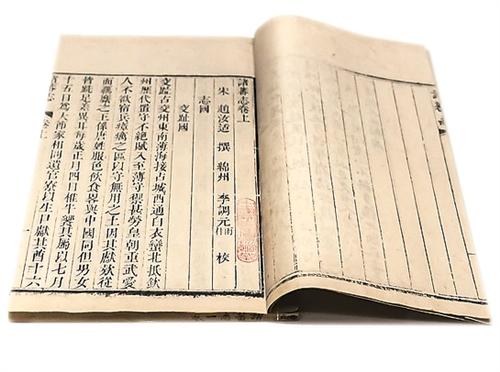 諸蕃志卷上
宋 趙汝适 撰 綿州 李調元 雨村 校
志國
交趾國
交趾古交州東南薄海接占城西通白衣蠻北抵欽
州歷代置守不絕賦入至薄守禦甚勞皇朝重武愛
人不欲宿兵瘴癘之區以守無用之土因其獻欵從
而羈縻之王係唐姓服色飲食畧與中國同但男女
皆跣足差異耳每歲正月四日椎牛饗其屬以七月
十五日為大節家相問遺官寮以生口獻其酋十六